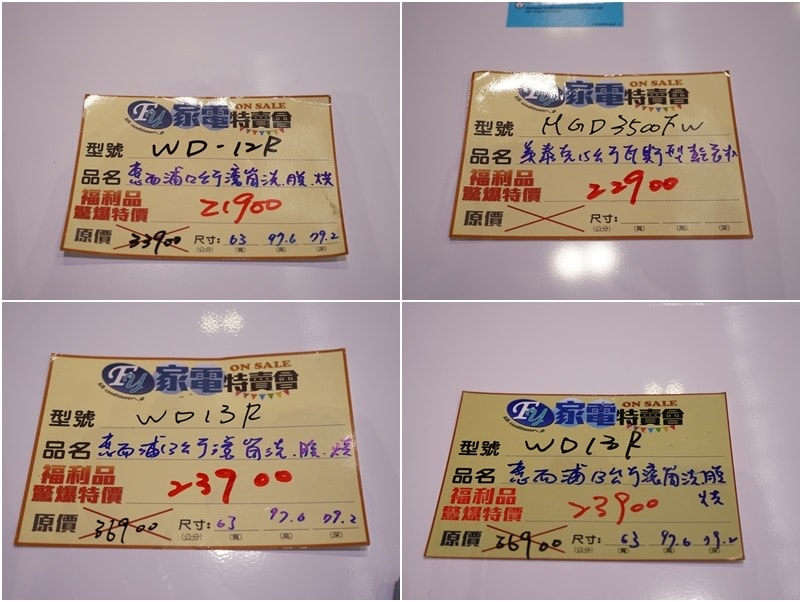 FY 家電特賣會
ON SALE
型號 WD-12R
品名 惠而浦12公斤滾筒洗.脫.烘
福利品 驚爆特價 21900
原價 33900 尺寸: 63 97.6 79.2
(公分) (寬) (高) (深)
家電特賣會
ON SALE
型號 MGD3500FW
品名 美泰克15公斤瓦斯型乾衣機
福利品 驚爆特價 22900
原價 尺寸:
(公分) (寬) (高) (深)
FY 家電特賣會
ON SALE
air conditioner
型號 WD13R
品名 惠而浦13公斤滾筒洗.脫.烘
福利品 驚爆特價 23900
原價 36900 尺寸: 63 97.6 79.2
(公分) (寬) (高) (深)
FY 家電特賣會
ON SALE
air conditioner
型號 WD13R
品名 惠而浦13公斤滾筒洗脫
烘
福利品 驚爆特價 23900
原價 36900 尺寸: 63 97.6 79.2
(公分) (寬) (高) (深)